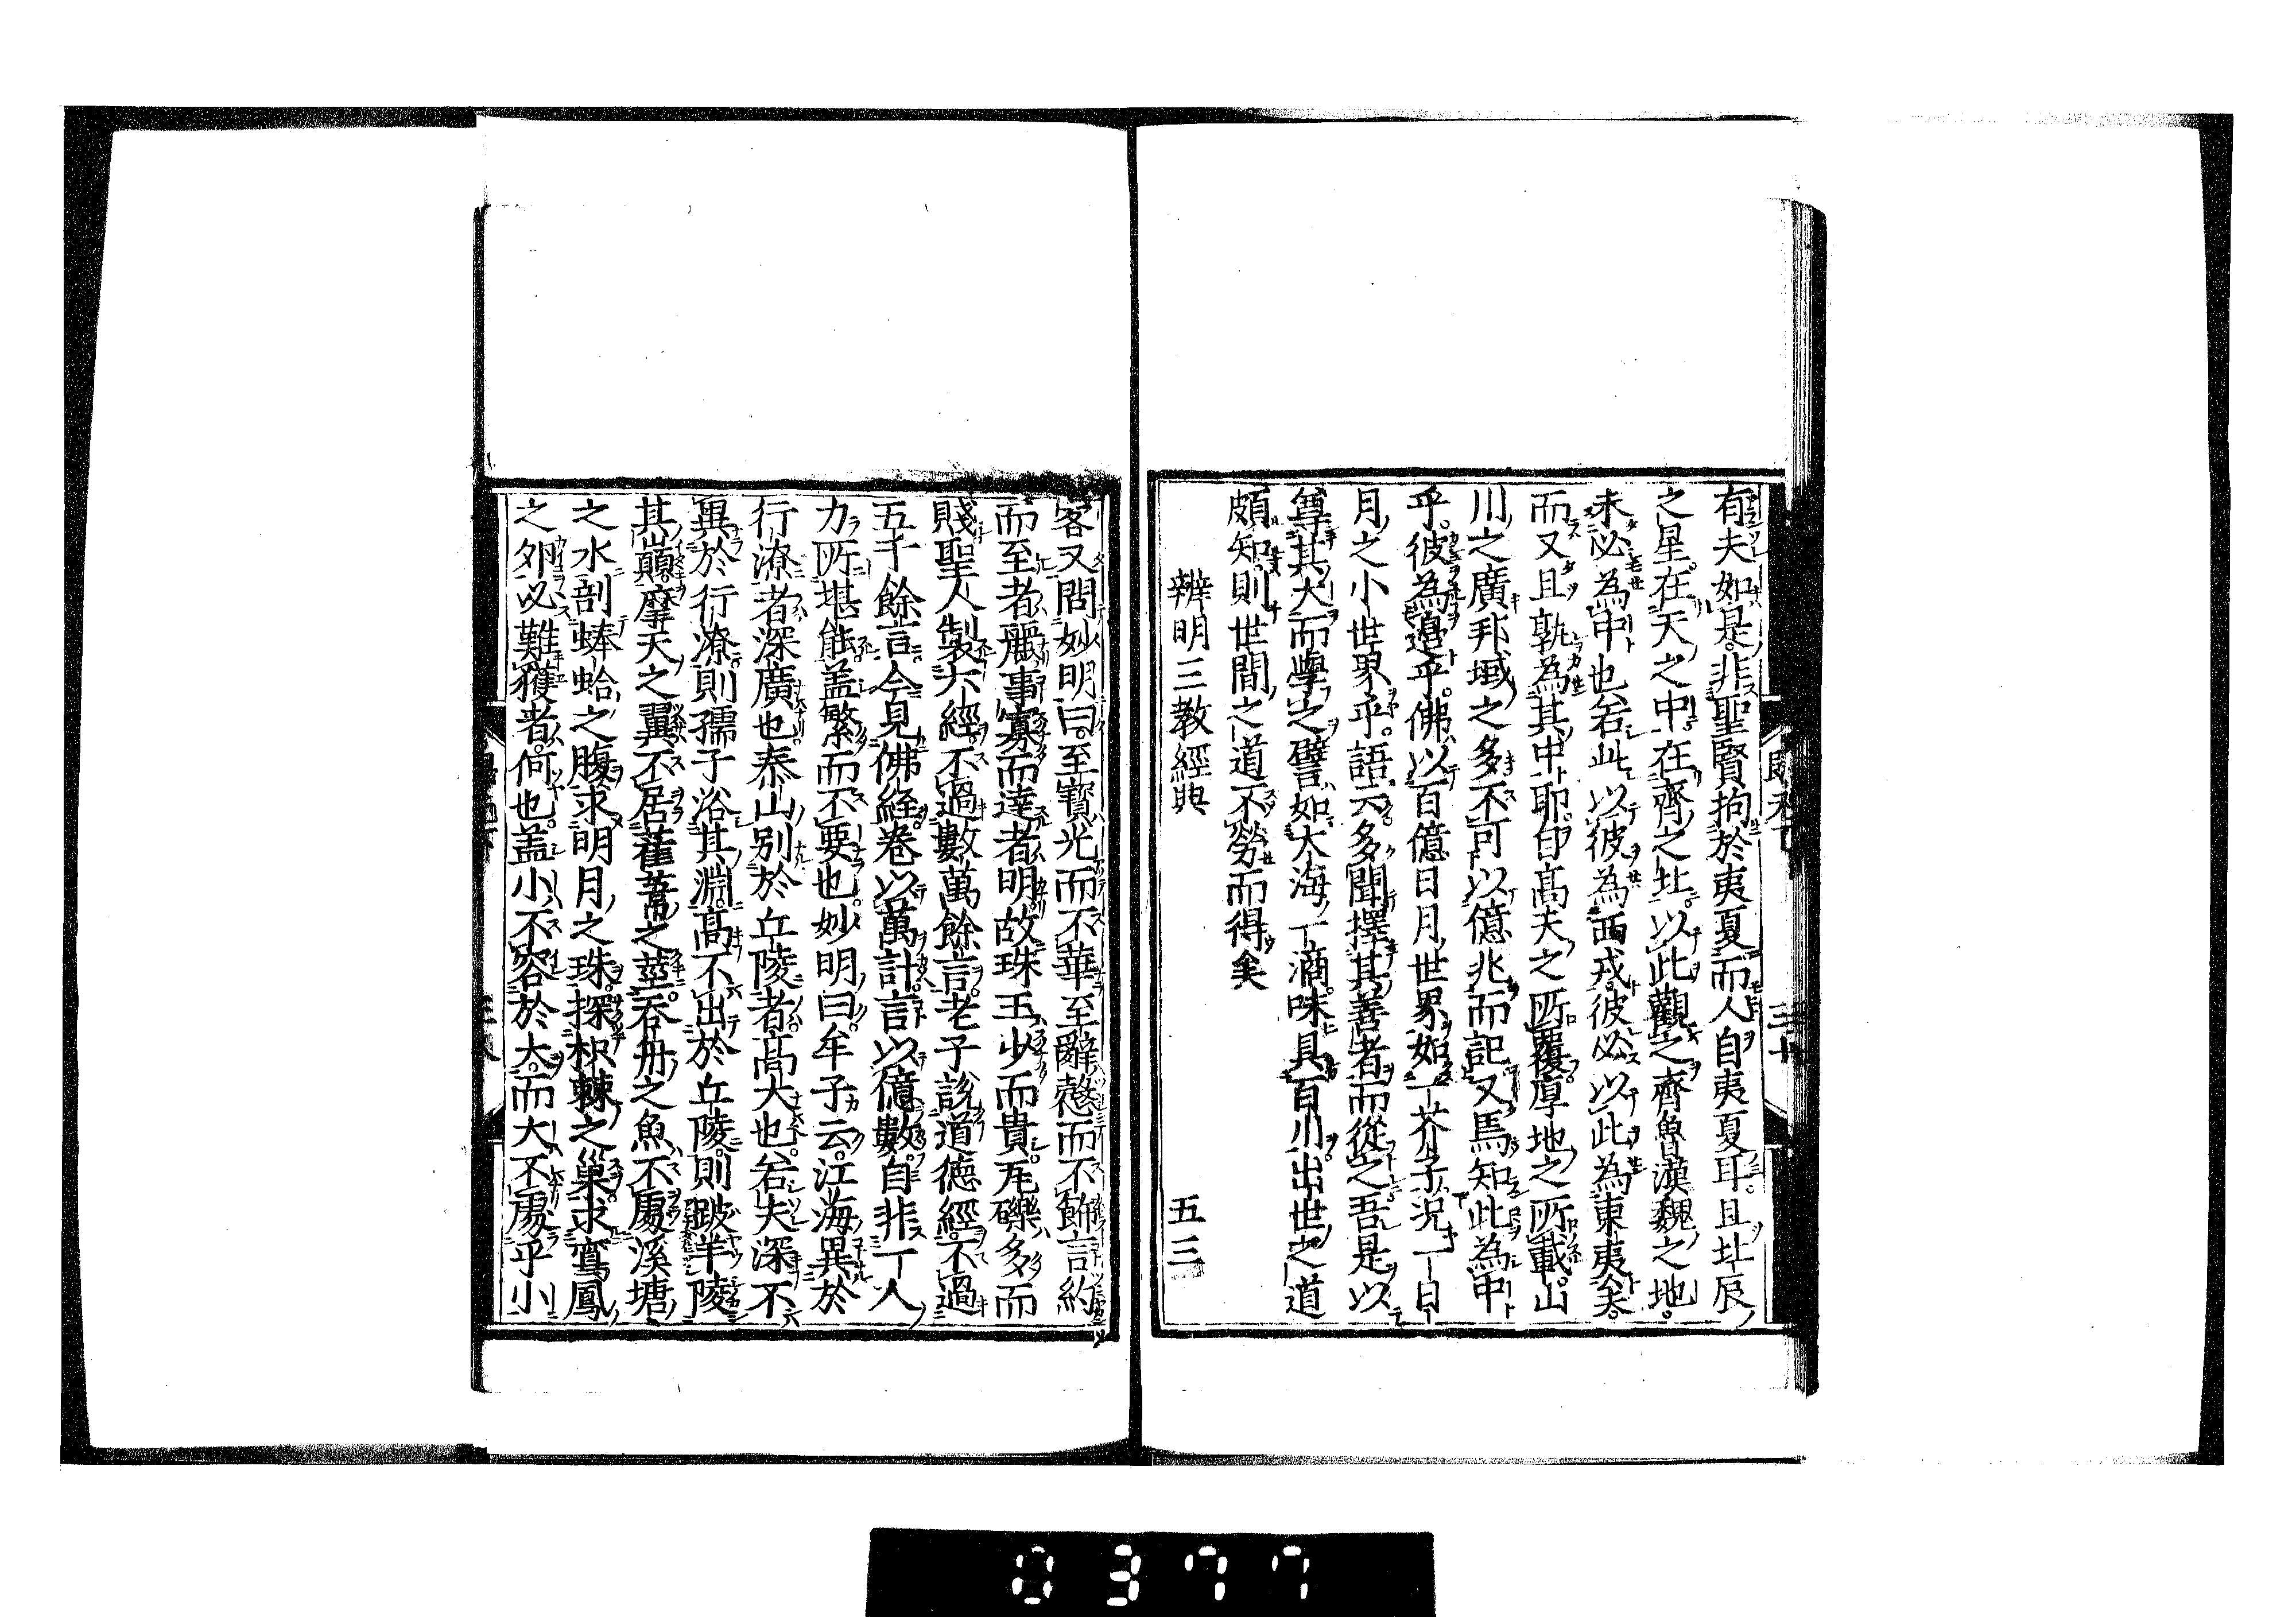 有夫如是非聖賢拘於夷夏而人自夷夏耳且北辰
之星在天之中在齊之北以此觀之齊魯漢魏之地
未必為中也若此以彼為西戎彼必以此為東夷矣
而又且孰為其中耶自高夫之所覆厚地之所載山
川之廣邦域之多不可以億兆而記又焉知此為中
乎彼為邉乎佛以百億日月世界如一芥子況一日
月之小世界乎語云多聞擇其善者而從之吾是以
尊其大而學之譬如大海一滴味具百川出世之道
頗知則世間之道不勞而得矣
辨明三教經典 五三
客又問妙明曰至寶光而不華至辭慤而不飾言約
而至者麗事寡而達者明故珠玉少而貴瓦礫多而
賤聖人製六經不過數萬餘言老子說道德經不過
五千餘言今見佛經卷以萬計言以億數自非一人
力所堪能盖繁而不要也妙明曰牟子云江海異於
行潦者深廣也泰山別於丘陵者高大也若夫深不
異於行潦則孺子浴其淵高不出於丘陵則跛羊陵
其巔摩天之翼不居藋蒿之莖吞舟之魚不處溪塘
之水剖蜯蛤之腹求明月之珠探枳棘之巢求鸞鳳
之卵必難獲者何也盖小不容於大而大不處乎小
0377